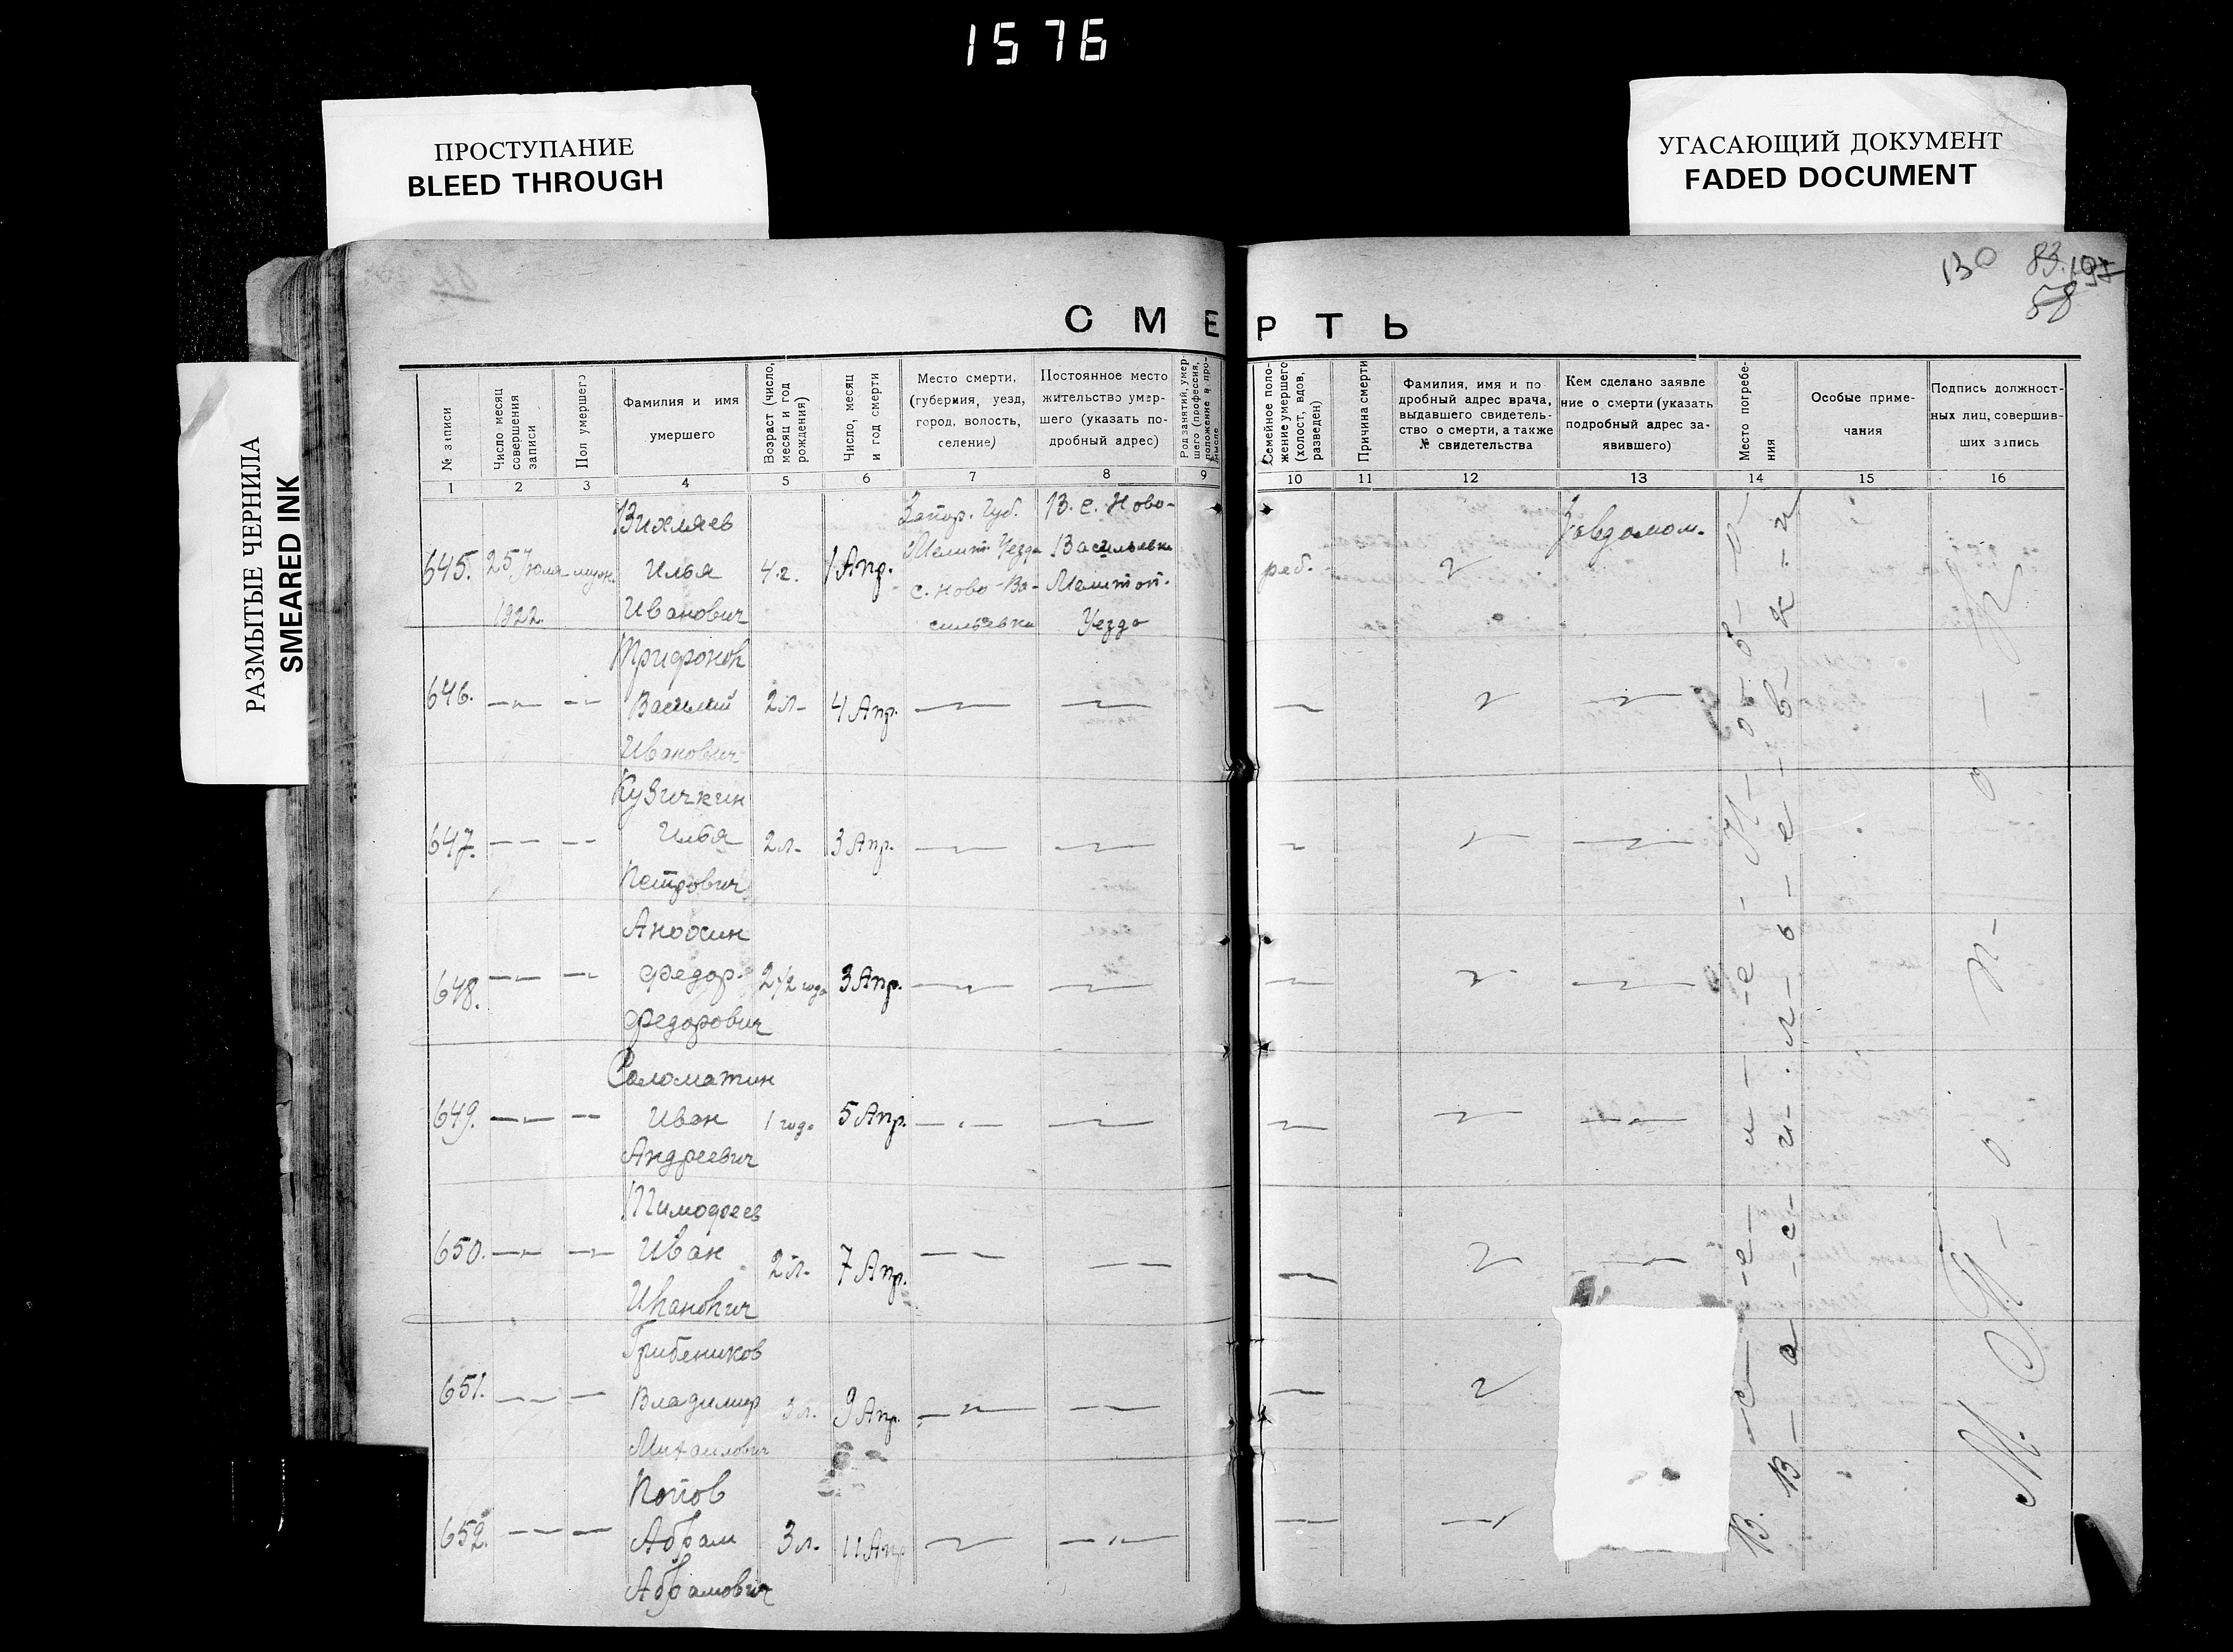 1576
ПРОСТУПАНИЕ
BLEED THROUGH
УГАСАЮЩИЙ ДОКУМЕНТ
FADED DOCUMENT
РАЗМЫТЫЕ ЧЕРНИЛА
SMEARED INK
130 83.
58
СМЕРТЬ
№ записи
Число месяц совершения записи
Пол умершего
Фамилия и имя умершего
Возраст (число, месяц и год рождения)
Число, месяц и год смерти
Место смерти, (губерния, уезд, город, волость, селение)
Постоянное место жительство умершего (указать подробный адрес)
Род занятий, умершего (профессия, положение в промысле
Семейное положение умершего (холост, вдов, разведен)
Причина смерти
Фамилия, имя и подробный адрес врача, выдавшего свидетельство о смерти, а также № свидетельства
Кем сделано заявление о смерти (указать подробный адрес заявившего)
Место погребения
Особые примечания
Подпись должностных лиц, совершивших запись
1 2 3 4 5 6 7 8 9 10 11 12 13 14 15 16
Вихляев Запор. Губ. В. с. Ново-
Мелит. Уезда Васильевка
645. 25 Июля муж. Илья 4 г. 1 Апр. с. Ново-Ва- Мелитоп. реб.
1922. Иванович сильевка Уезда
Трифонов
646. Василий 2 л. 4 Апр.
Иванович
Кузичкин
647. Илья 2 л. 3 Апр.
Петрович
Анохин
648. Федор 2 1/2 года 3 Апр.
Федорович
Соломатин
649. Иван 1 года 5 Апр.
Андреевич
Тимофеев
650. Иван 2 л. 7 Апр.
Иванович
Грибеников
651. Владимир 3 л. 9 Апр.
Михаилович
Попов
652. Абрам 3 л. 11 Апр
Абрамович